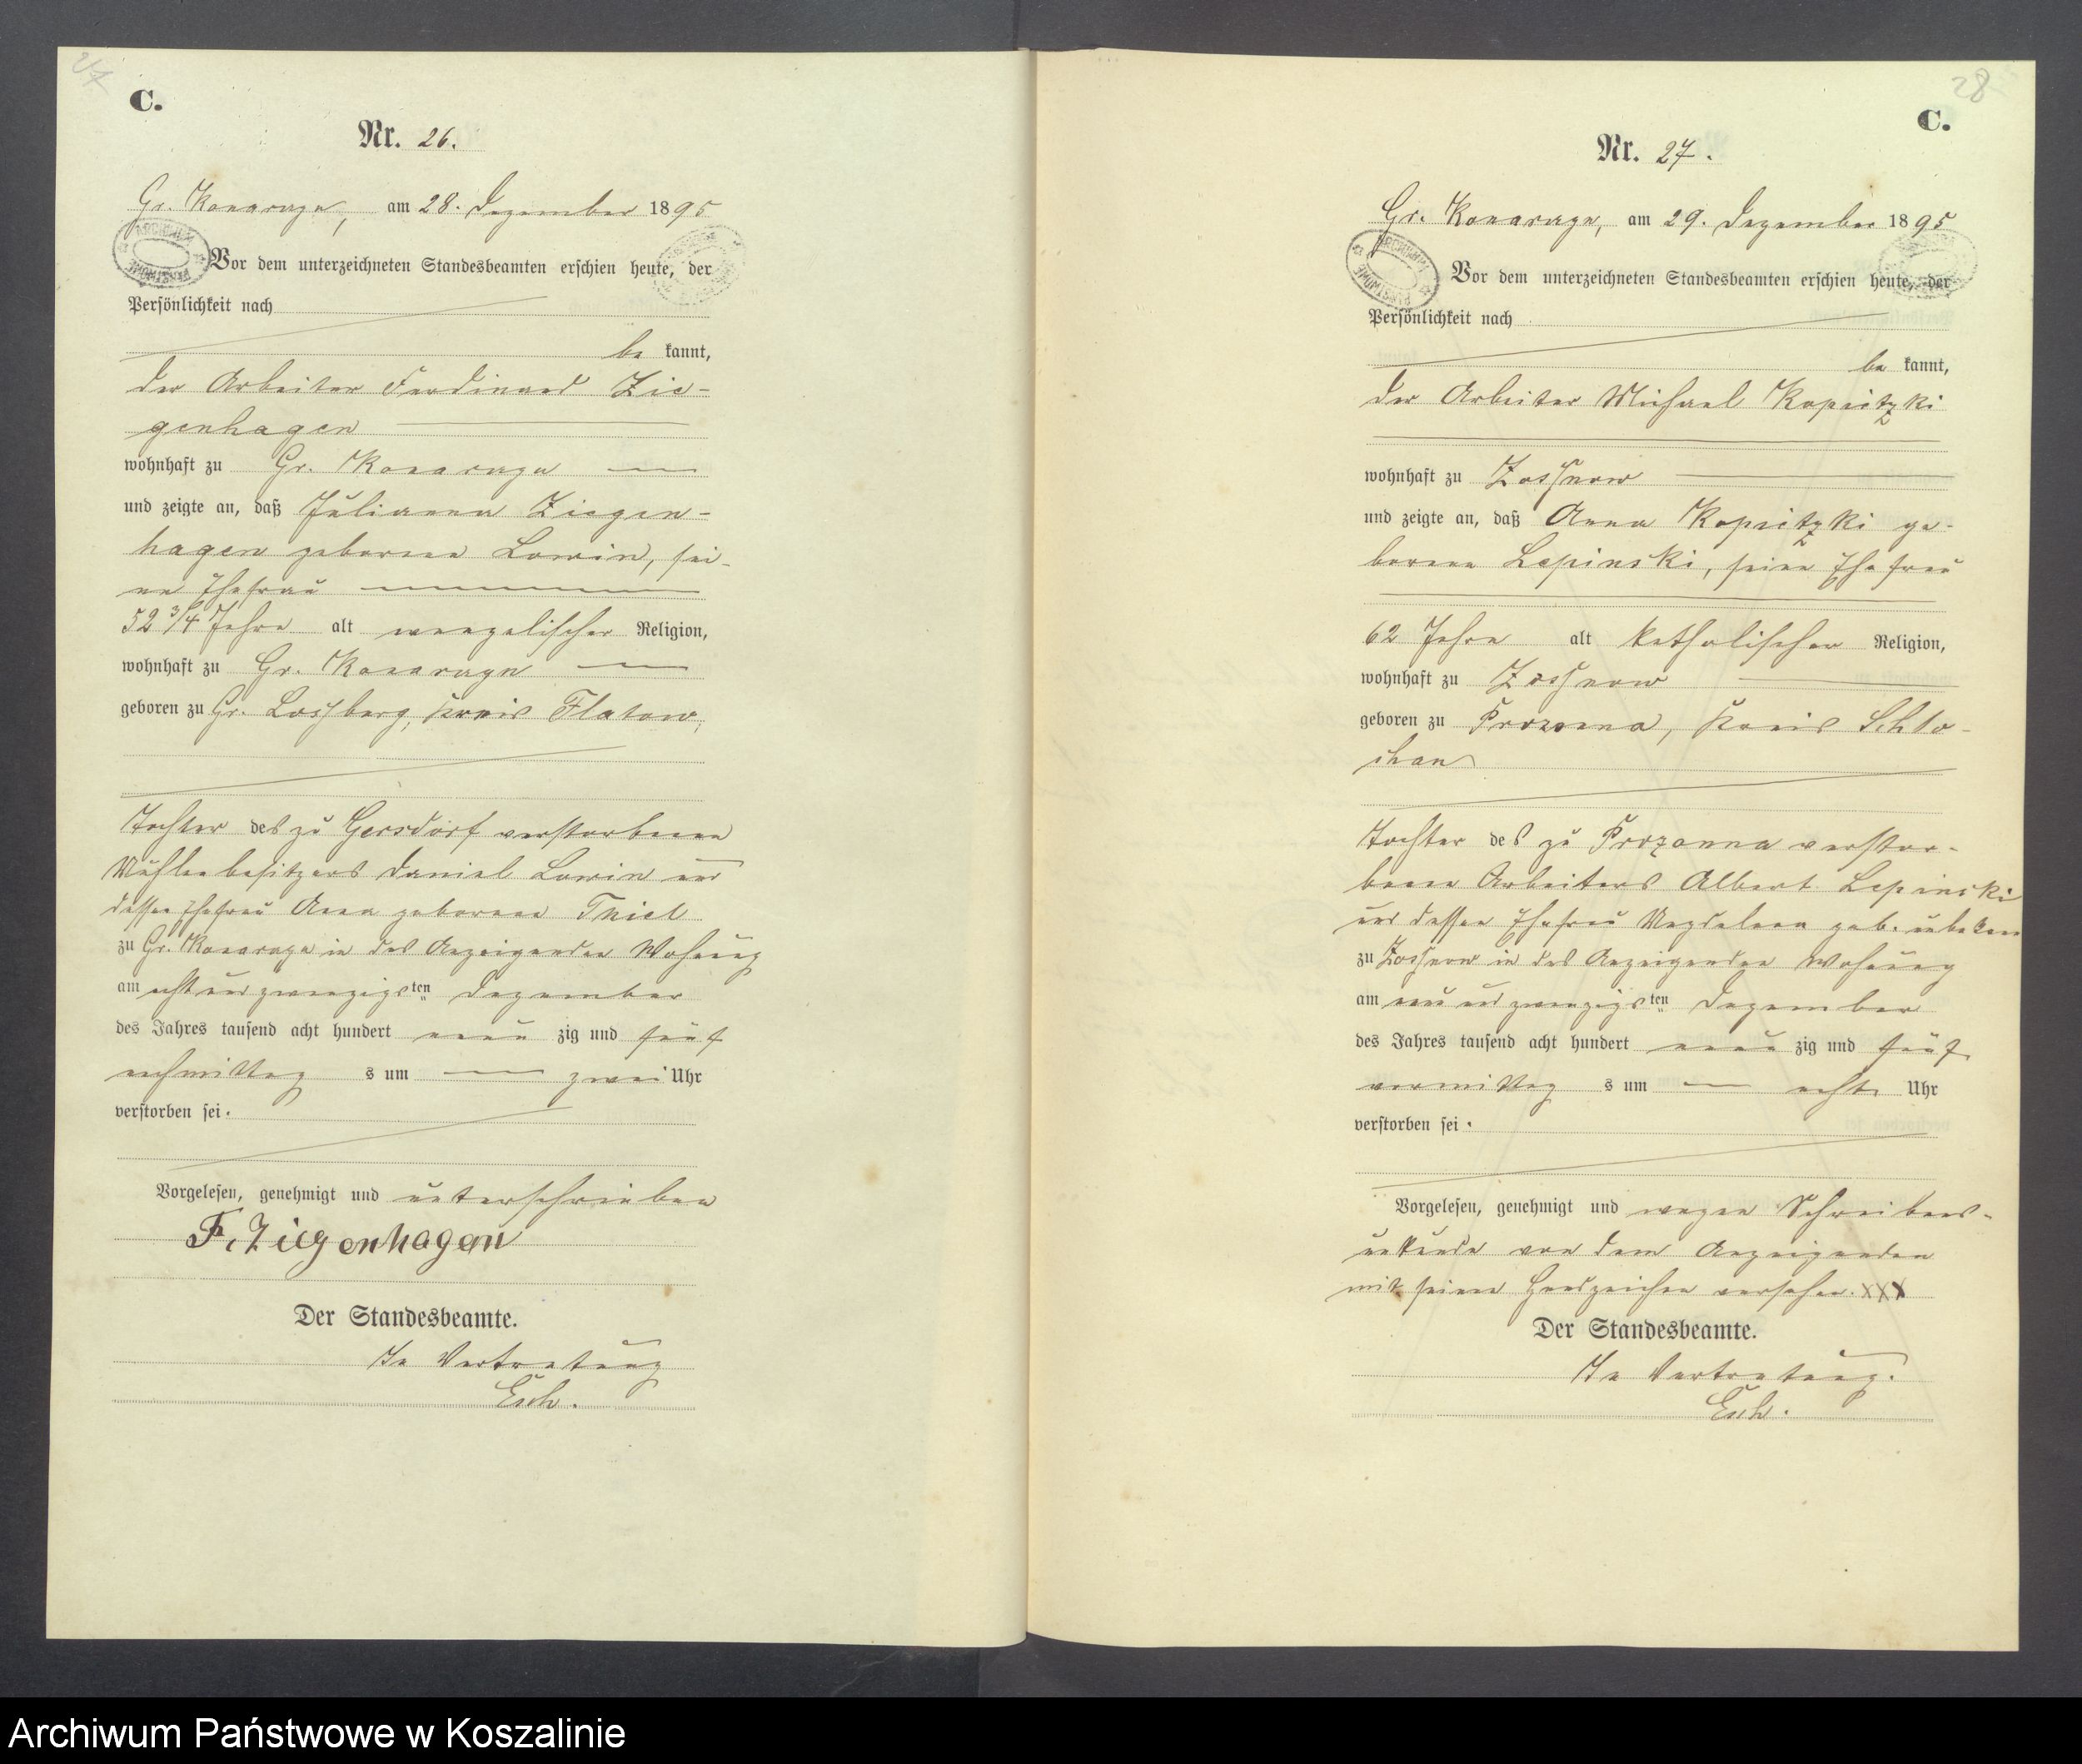 27
C.
Nr. 26.
Gr. Konarzyn, am 28. Dezember 1895
Vor dem unterzeichneten Standesbeamten erschien heute, der
Persönlichkeit nach
be kannt,
der Arbeiter Ferdinand Zie-
genhagen
wohnhaft zu Gr. Konarzyn
und zeigte an, daß Julianna Ziegen-
hagen geborene Lowin, sei-
ne Ehefrau
52 3/4 Jahre alt evangelischer Religion,
wohnhaft zu Gr. Konarzyn
geboren zu Gr. Lossberg, Kreis Flatow,
Tochter des zu Gersdorf verstorbenen
Mühlenbesitzers Daniel Lowin und
dessen Ehefrau Anna geborene Thiel
zu Gr. Konarzyn in des Anzeigenden Wohnung
am acht und zwanzigsten Dezember
des Jahres tausend acht hundert neun zig und fünf
nachmittag s um zwei Uhr
verstorben sei.
Vorgelesen, genehmigt und unterschrieben
F. Ziegenhagen
Der Standesbeamte.
In Vertretung
Esch.
28
C.
Nr. 27.
Gr. Konarzyn, am 29. Dezember 1895
Vor dem unterzeichneten Standesbeamten erschien heute, der
Persönlichkeit nach
be kannt,
der Arbeiter Michael Kopritzki
wohnhaft zu Zossnow
und zeigte an, daß Anna Kopritzki ge-
borene Lepinski, seine Ehefrau
62 Jahre alt katholischer Religion,
wohnhaft zu Zossnow
geboren zu Prozonna, Kreis Schlo-
chau
Tochter des zu Prozonna verstor-
benen Arbeiters Albert Lepinski
und dessen Ehefrau Magdalena geb. unbekann
zu Zossnow in des Anzeigenden Wohnung
am neun und zwanzigsten Dezember
des Jahres tausend acht hundert neun zig und fünf
vormittag s um acht Uhr
verstorben sei.
Vorgelesen, genehmigt und wegen Schreibens-
unkunde von dem Anzeigenden
mit seinen Handzeichen versehen. XXX
Der Standesbeamte.
In Vertretung.
Esch.
Archiwum Państwowe w Koszalinie